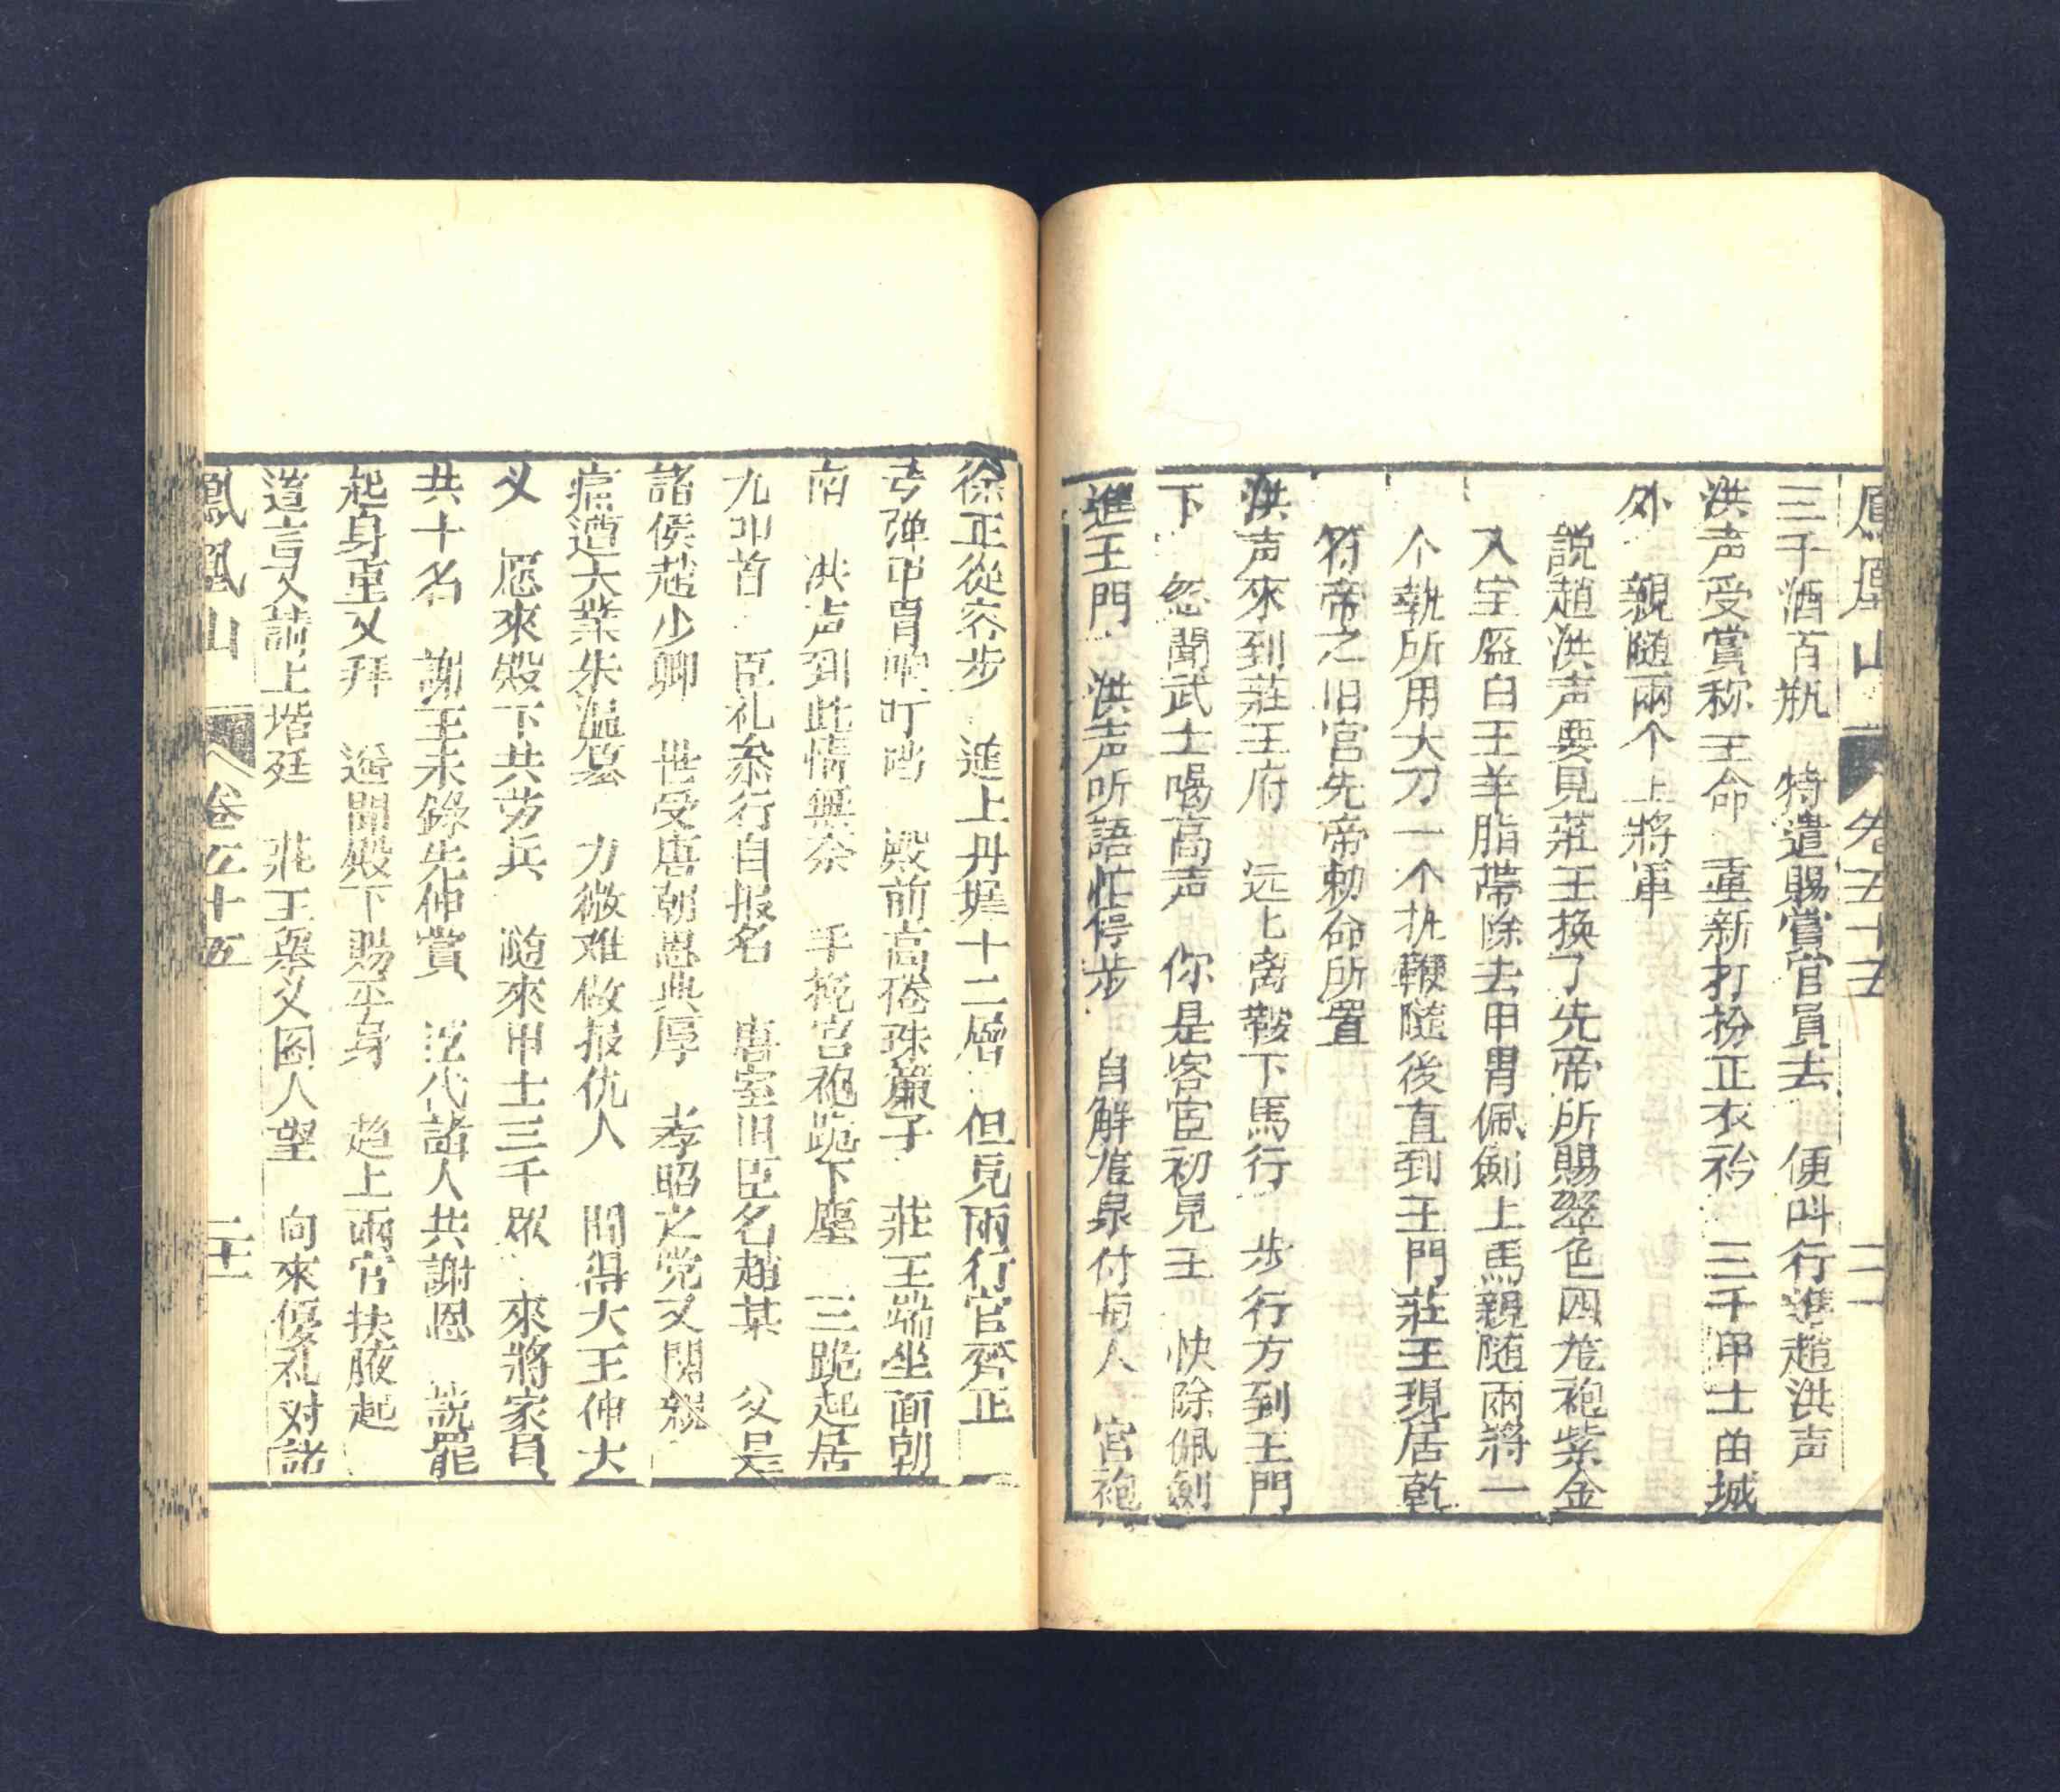 鳳凰山 卷五十五 二一
三千酒百瓶 特遣賜賞官員去 便叫行進趙洪声
洪声受賞称王命 重新打扮正衣衿 三千甲士由城
外 親随兩个上將軍
說趙洪声要見莊王換了先帝所賜翠色四龙袍紫金
入宝盔白玉羊脂帶除去甲胄佩劍上馬親随兩將一
个執所用大刀一个执鞭隨後直到王門莊王現居乾
符帝之旧宫先帝勅命所置
洪声來到莊王府 远匕离鞍下馬行 步行方到王門
下 忽聞武士喝高声 你是客官初見王 快除佩劍
進王門 洪声听語忙停步 自解龙泉付与人 宫袍
徐正從容步 進上丹墀十二層 但見兩行官齊正
弓彈甲冑 殿前高捲珠簾子 莊王端坐面朝
南 洪声到此情無奈 手挽宮袍跪下塵 三跪起居
九叩首 臣礼叅行自报名 唐室旧臣名趙某 父是
諸侯趙少卿 世受唐朝恩典厚 孝昭之党又関親
痛遭大業朱温篡 力微难做报仇人 聞得大王伸大
义 愿來殿下共劳兵 随來甲士三千眾 來將家員
共十名 謝王未錄先伸賞 代諸人共謝恩 説罷
起身重又拜 遥聞殿下賜平身 趋上兩官扶腋起
道言又請上堦廷 莊王梟义圈人望 向來優礼对諸
鳳凰山 卷五十五 二十一